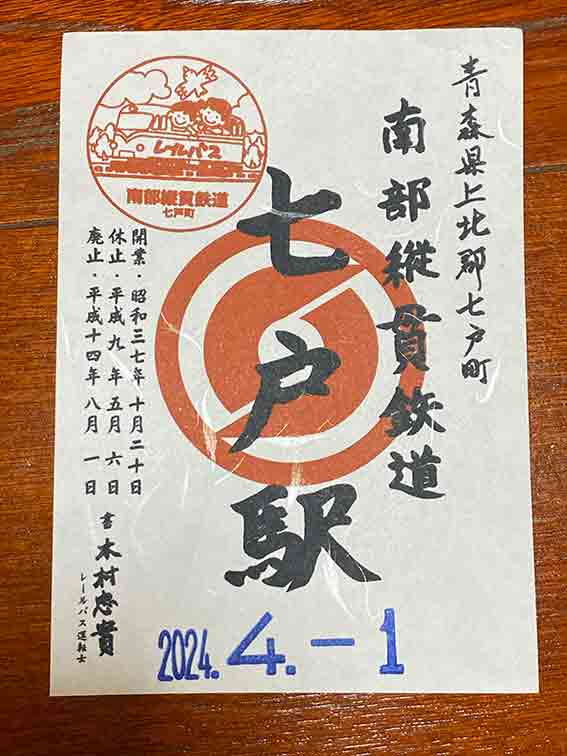 青森県上北郡七戸町
南部縦貫鉄道
七戸駅
レールバス
南部縦貫鉄道
七戸町
開業・昭和三七年十月二十日
休止・平成九年五月六日
廃止・平成十四年八月一日
書 木村忠貴
レールバス運転士
2024.4.-1